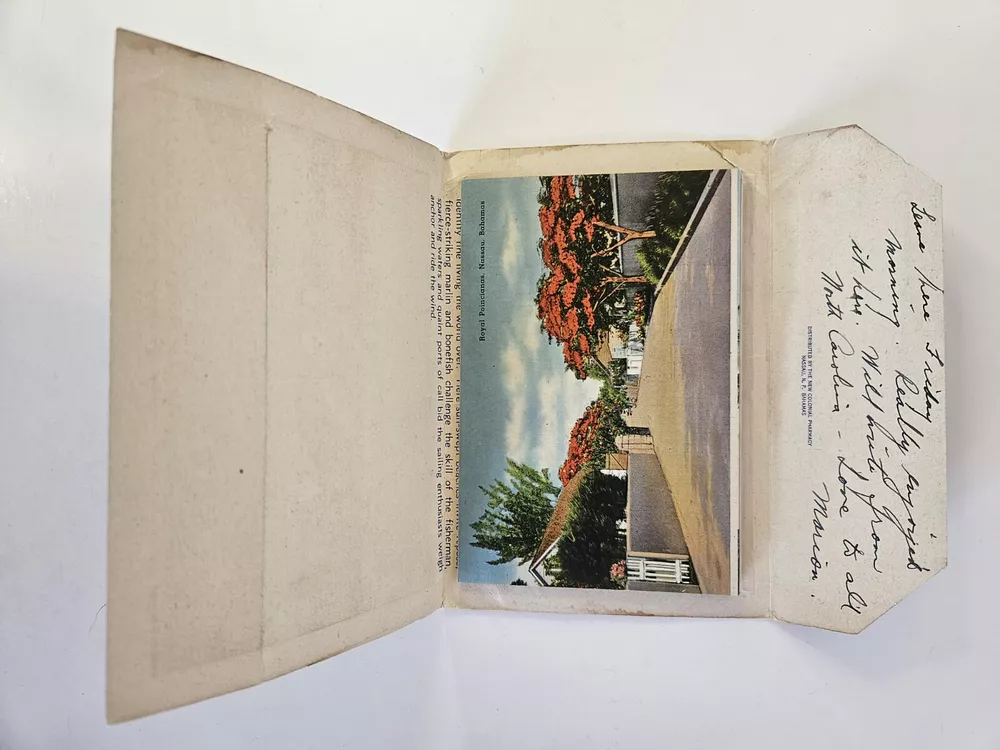 Leave here Friday
morning. Really enjoyed
it here. Will write from
North Carolina - Love to all
Marion.
DISTRIBUTED BY THE NEW COLONIAL PHARMACY
NASSAU, N. P., BAHAMAS
Royal Poincianas, Nassau, Bahamas
fierce-striking marlin and bonefish challenge the skill of the fisherman,
sparkling waters and quaint ports of call bid the sailing enthusiasts weigh
anchor and ride the wind.